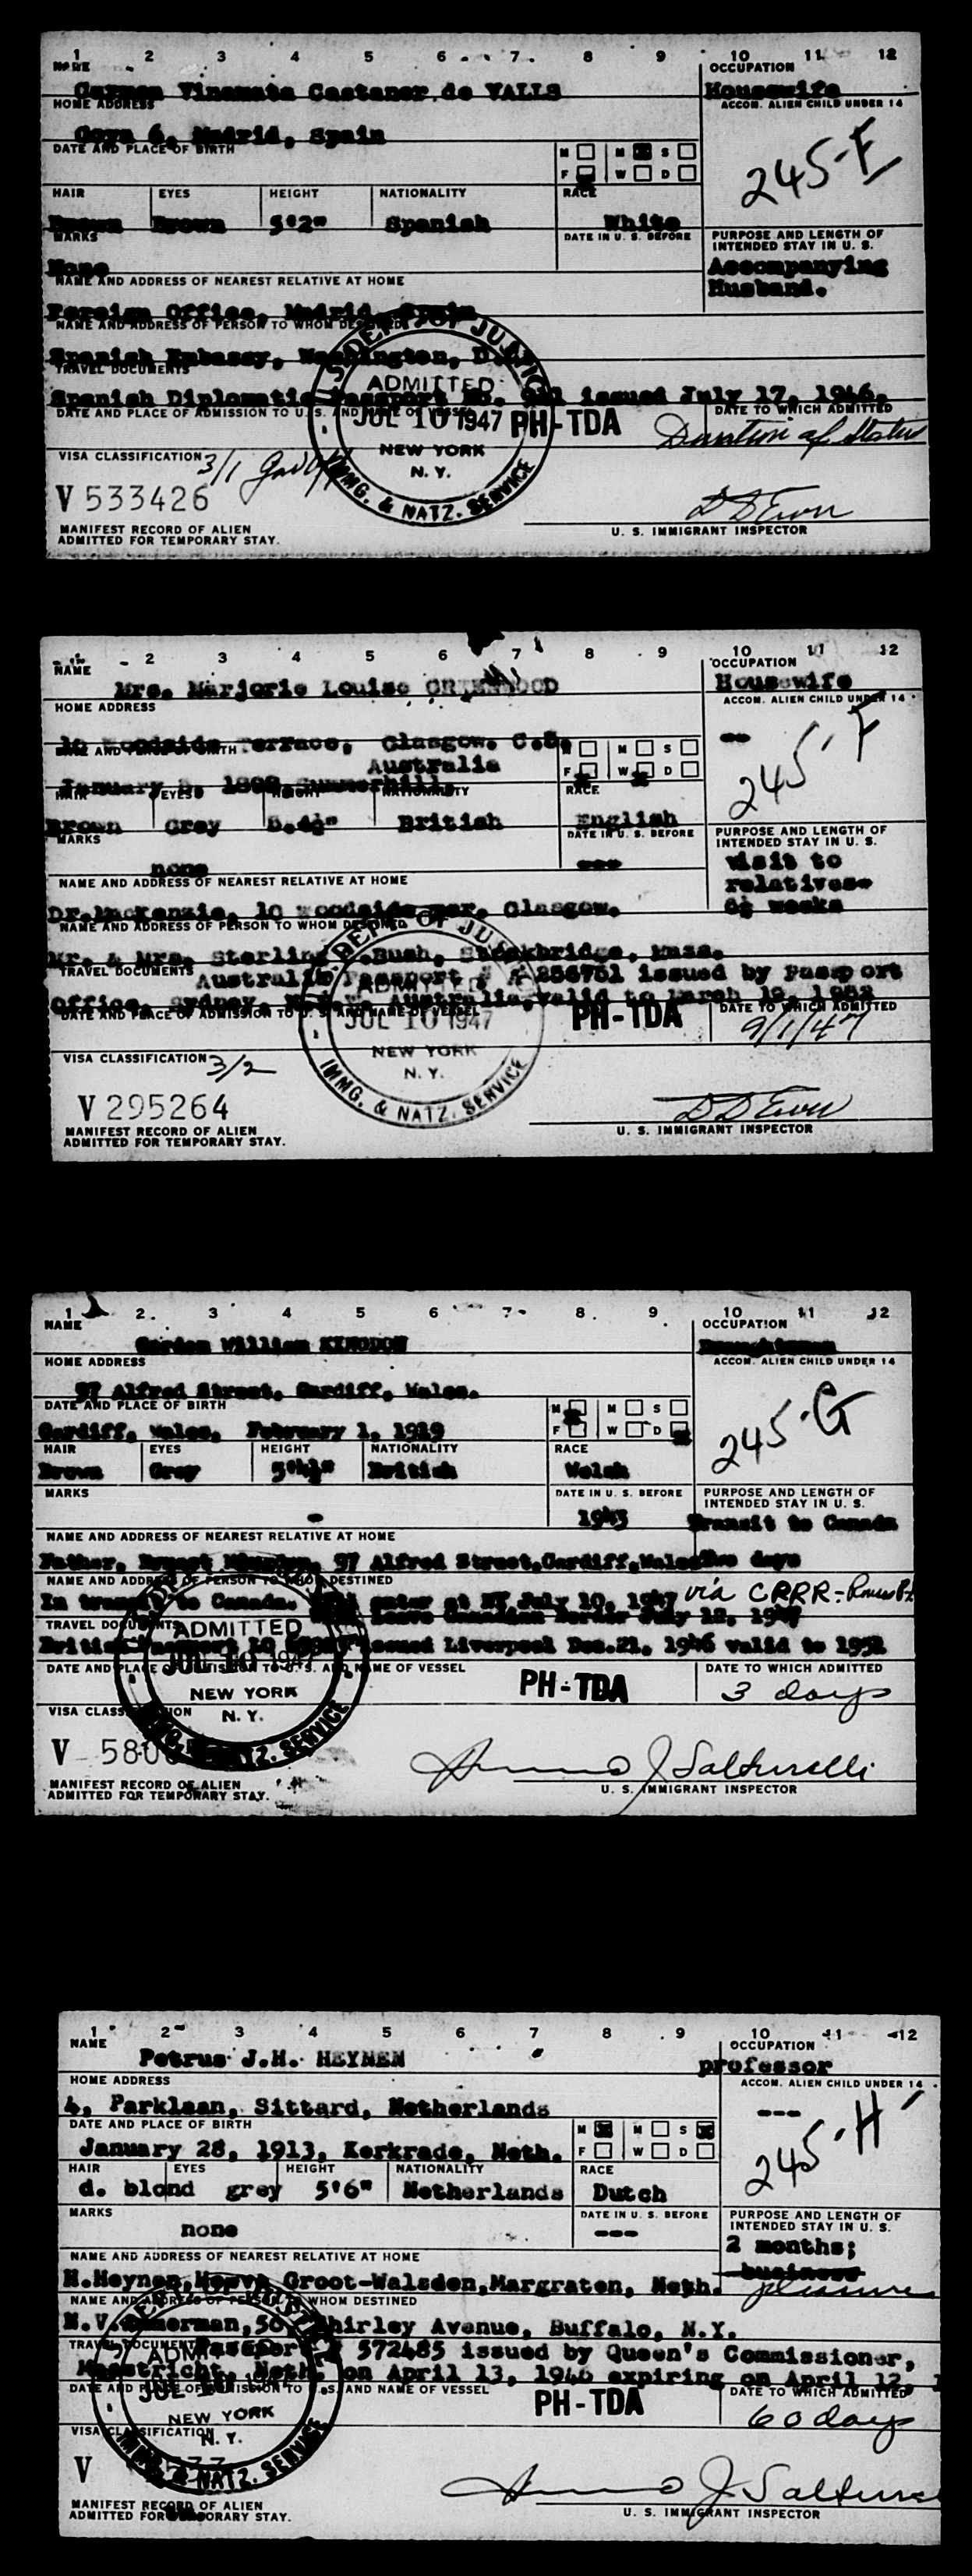 1 2 3 4 5 6 7 8 9 10 11 12
NAME OCCUPATION
Carmen Vinamata Castaner de VALLS Housewife
HOME ADDRESS ACCOM. ALIEN CHILD UNDER 14
Goya 6, Madrid, Spain
DATE AND PLACE OF BIRTH M M S
F W D
245-E
HAIR EYES HEIGHT NATIONALITY RACE
Brown Brown 5'2" Spanish White
MARKS DATE IN U. S. BEFORE PURPOSE AND LENGTH OF INTENDED STAY IN U. S.
None Accompanying Husband.
NAME AND ADDRESS OF NEAREST RELATIVE AT HOME
Foreign Office, Madrid, Spain
NAME AND ADDRESS OF PERSON TO WHOM DESTINED
Spanish Embassy, Washington, D.C.
TRAVEL DOCUMENTS
Spanish Diplomatic Passport No. issued July 17, 1946.
DATE AND PLACE OF ADMISSION TO U. S. AND NAME OF VESSEL DATE TO WHICH ADMITTED
U.S. DEPT. OF JUSTICE ADMITTED JUL 10 1947 NEW YORK N. Y. IMMG. & NATZ. SERVICE
PH-TDA Duration of Status
VISA CLASSIFICATION 3/1
V 533426
MANIFEST RECORD OF ALIEN U. S. IMMIGRANT INSPECTOR
ADMITTED FOR TEMPORARY STAY.
2 3 4 5 6 7 8 9 10 11 12
NAME OCCUPATION
Mrs. Marjorie Louise GREENWOOD Housewife
HOME ADDRESS ACCOM. ALIEN CHILD UNDER 14
10 Woodside Terrace, Glasgow. C.3. --
Australia M M S
F W D
245-F
January 1898, Summerhill,
HAIR EYES HEIGHT NATIONALITY RACE
Brown Grey 5.4½" British English
MARKS DATE IN U. S. BEFORE PURPOSE AND LENGTH OF INTENDED STAY IN U. S.
none --- visit to relatives- 6½ weeks
NAME AND ADDRESS OF NEAREST RELATIVE AT HOME
Dr. MacKenzie, 10 Woodside Ter. Glasgow.
NAME AND ADDRESS OF PERSON TO WHOM DESTINED
Mr. & Mrs. Sterling Bush, Stockbridge, Mass.
TRAVEL DOCUMENTS Australian Passport # A 256761 issued by Passport
Office, Sydney, Australia, valid to March 1952
DATE AND PLACE OF ADMISSION TO U. S. AND NAME OF VESSEL DATE TO WHICH ADMITTED
DEPT. OF JUSTICE ADMITTED JUL 10 1947 NEW YORK N. Y. IMMG. & NATZ. SERVICE
PH-TDA 9/1/47
VISA CLASSIFICATION 3/2
V 295264
MANIFEST RECORD OF ALIEN U. S. IMMIGRANT INSPECTOR
ADMITTED FOR TEMPORARY STAY.
1 2 3 4 5 6 7 8 9 10 11 12
NAME OCCUPATION
Gordon William KINGDON Draughtsman
HOME ADDRESS ACCOM. ALIEN CHILD UNDER 14
97 Alfred Street, Cardiff, Wales.
DATE AND PLACE OF BIRTH M M S
F W D
245-G
Cardiff, Wales, February 1, 1919
HAIR EYES HEIGHT NATIONALITY RACE
Brown Grey British Welsh
MARKS DATE IN U. S. BEFORE PURPOSE AND LENGTH OF INTENDED STAY IN U. S.
- 1943 Transit to Canada
NAME AND ADDRESS OF NEAREST RELATIVE AT HOME
Father, Ernest Kingdon, 97 Alfred Street, Cardiff, Wales Two days
NAME AND ADDRESS OF PERSON TO WHOM DESTINED
In transit to Canada. enter at NY July 10, 1947 via CRRR-
Leave Canadian Border July 12, 1947
TRAVEL DOCUMENTS
British Passport issued Liverpool Dec.21, 1946 valid to 1951
DATE AND PLACE OF ADMISSION TO U. S. AND NAME OF VESSEL DATE TO WHICH ADMITTED
ADMITTED JUL 10 1947 NEW YORK N. Y. SERVICE
PH-TDA 3 days
VISA CLASSIFICATION
V 580
MANIFEST RECORD OF ALIEN U. S. IMMIGRANT INSPECTOR
ADMITTED FOR TEMPORARY STAY.
1 2 3 4 5 6 7 8 9 10 11 12
NAME OCCUPATION
Petrus J.H. HEYNEN professor
HOME ADDRESS ACCOM. ALIEN CHILD UNDER 14
4, Parklaan, Sittard, Netherlands ---
DATE AND PLACE OF BIRTH M M S
F W D
245-H
January 28, 1913, Kerkrade, Neth.
HAIR EYES HEIGHT NATIONALITY RACE
d. blond grey 5'6" Netherlands Dutch
MARKS DATE IN U. S. BEFORE PURPOSE AND LENGTH OF INTENDED STAY IN U. S.
none --- 2 months; business pleasure
NAME AND ADDRESS OF NEAREST RELATIVE AT HOME
H.Heynen, Groot-Walsden, Margraten, Neth.
NAME AND ADDRESS OF PERSON TO WHOM DESTINED
Shirley Avenue, Buffalo, N.Y.
TRAVEL DOCUMENTS Passport 572485 issued by Queen's Commissioner,
Maastricht, Neth. on April 13, 1946 expiring on April 12,
DATE AND PLACE OF ADMISSION TO U. S. AND NAME OF VESSEL DATE TO WHICH ADMITTED
ADMITTED JUL NEW YORK N. Y. & NATZ. SERVICE
PH-TDA 60 days
VISA CLASSIFICATION
V
MANIFEST RECORD OF ALIEN U. S. IMMIGRANT INSPECTOR
ADMITTED FOR TEMPORARY STAY.